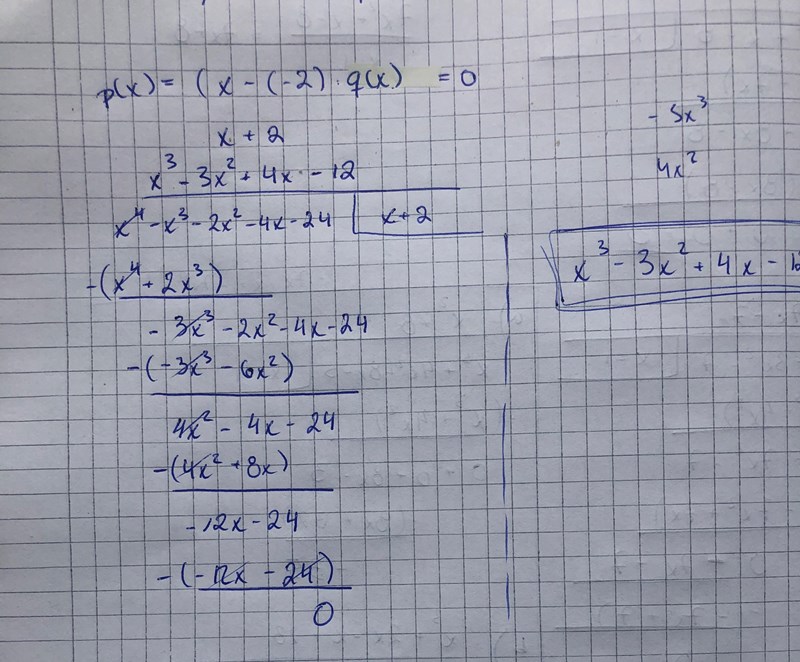 p(x) = (x - (-2) · q(x) = 0
x + 2
x³ - 3x² + 4x - 12
x⁴ - x³ - 2x² - 4x - 24 | x+2
-(x⁴ + 2x³)
- 3x³ - 2x² - 4x - 24
-(-3x³ - 6x²)
4x² - 4x - 24
-(4x² + 8x)
- 12x - 24
-(-12x - 24)
0
- 3x³
4x²
x³ - 3x² + 4x - 12